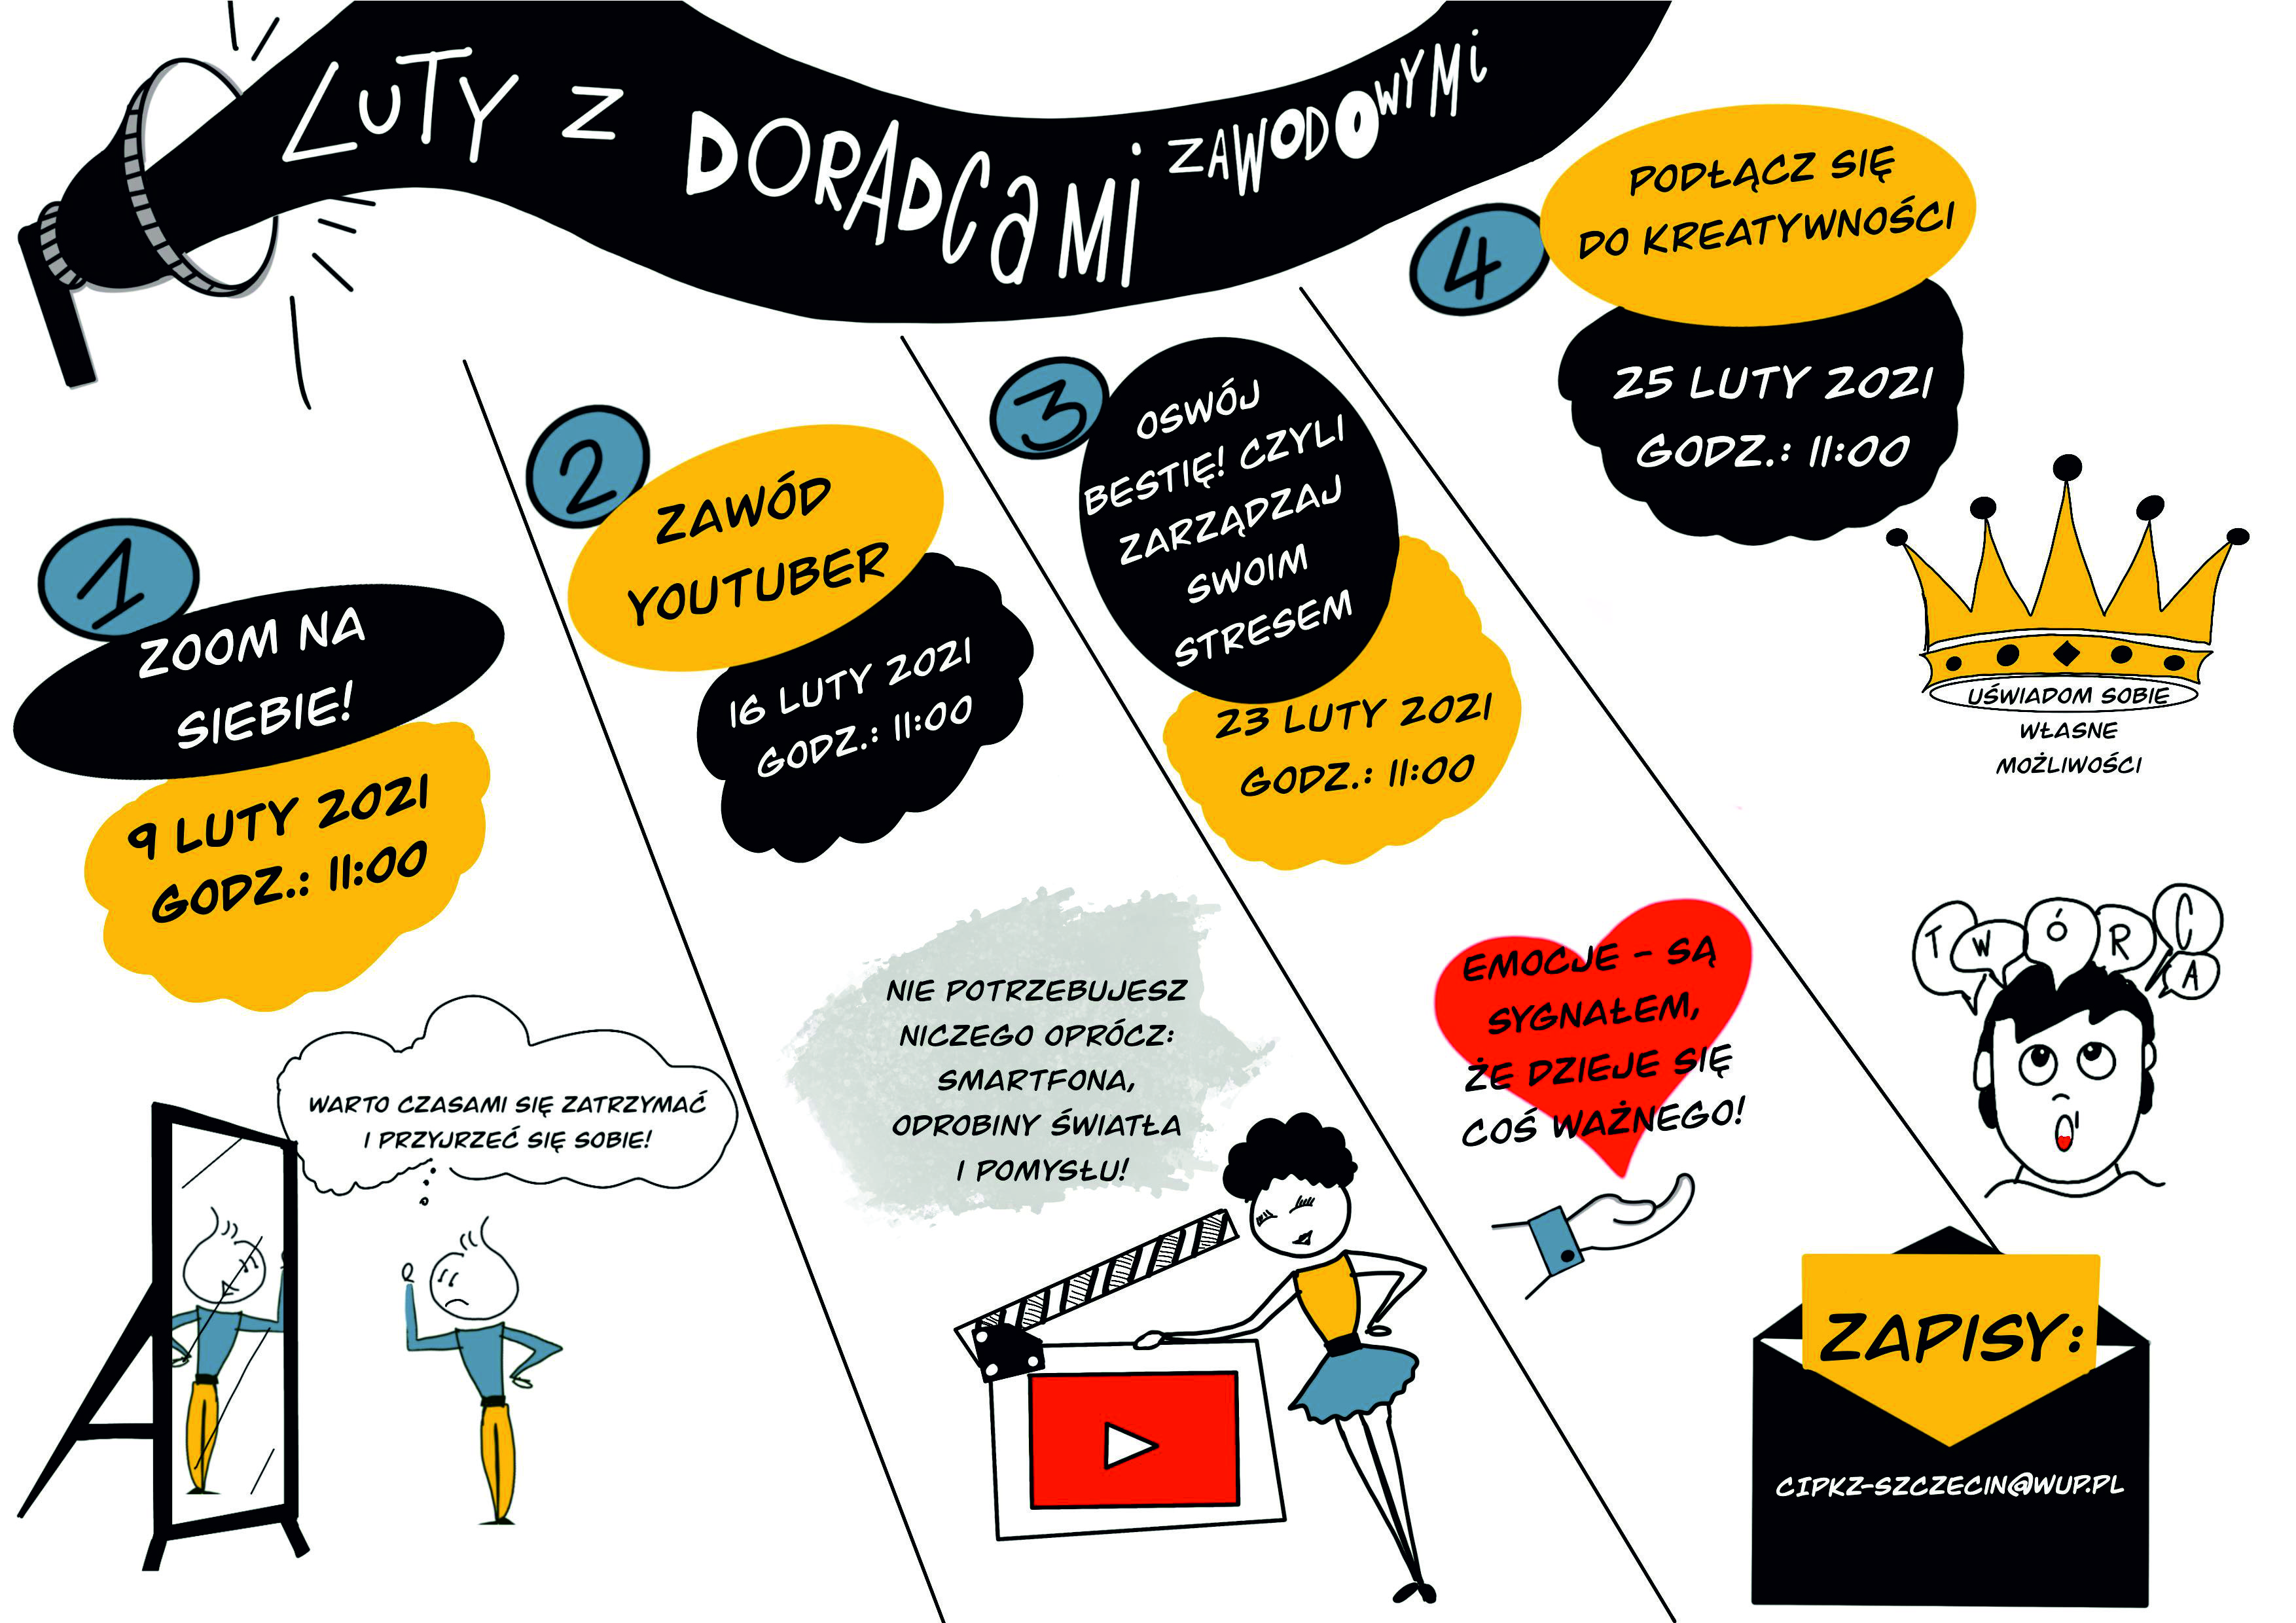 LUTY Z DORADCAMI ZAWODOWYMI
1
ZOOM NA
SIEBIE!
9 LUTY 2021
GODZ.: 11:00
WARTO CZASAMI SIĘ ZATRZYMAĆ
I PRZYJRZEĆ SIĘ SOBIE!
2
ZAWÓD
YOUTUBER
16 LUTY 2021
GODZ.: 11:00
NIE POTRZEBUJESZ
NICZEGO OPRÓCZ:
SMARTFONA,
ODROBINY ŚWIATŁA
I POMYSŁU!
3
OSWÓJ
BESTIĘ! CZYLI
ZARZĄDZAJ
SWOIM
STRESEM
23 LUTY 2021
GODZ.: 11:00
EMOCJE – SĄ
SYGNAŁEM,
ŻE DZIEJE SIĘ
COŚ WAŻNEGO!
4
PODŁĄCZ SIĘ
DO KREATYWNOŚCI
25 LUTY 2021
GODZ.: 11:00
UŚWIADOM SOBIE
WŁASNE
MOŻLIWOŚCI
TWÓRCA
ZAPISY:
CIPKZ-SZCZECIN@WUP.PL